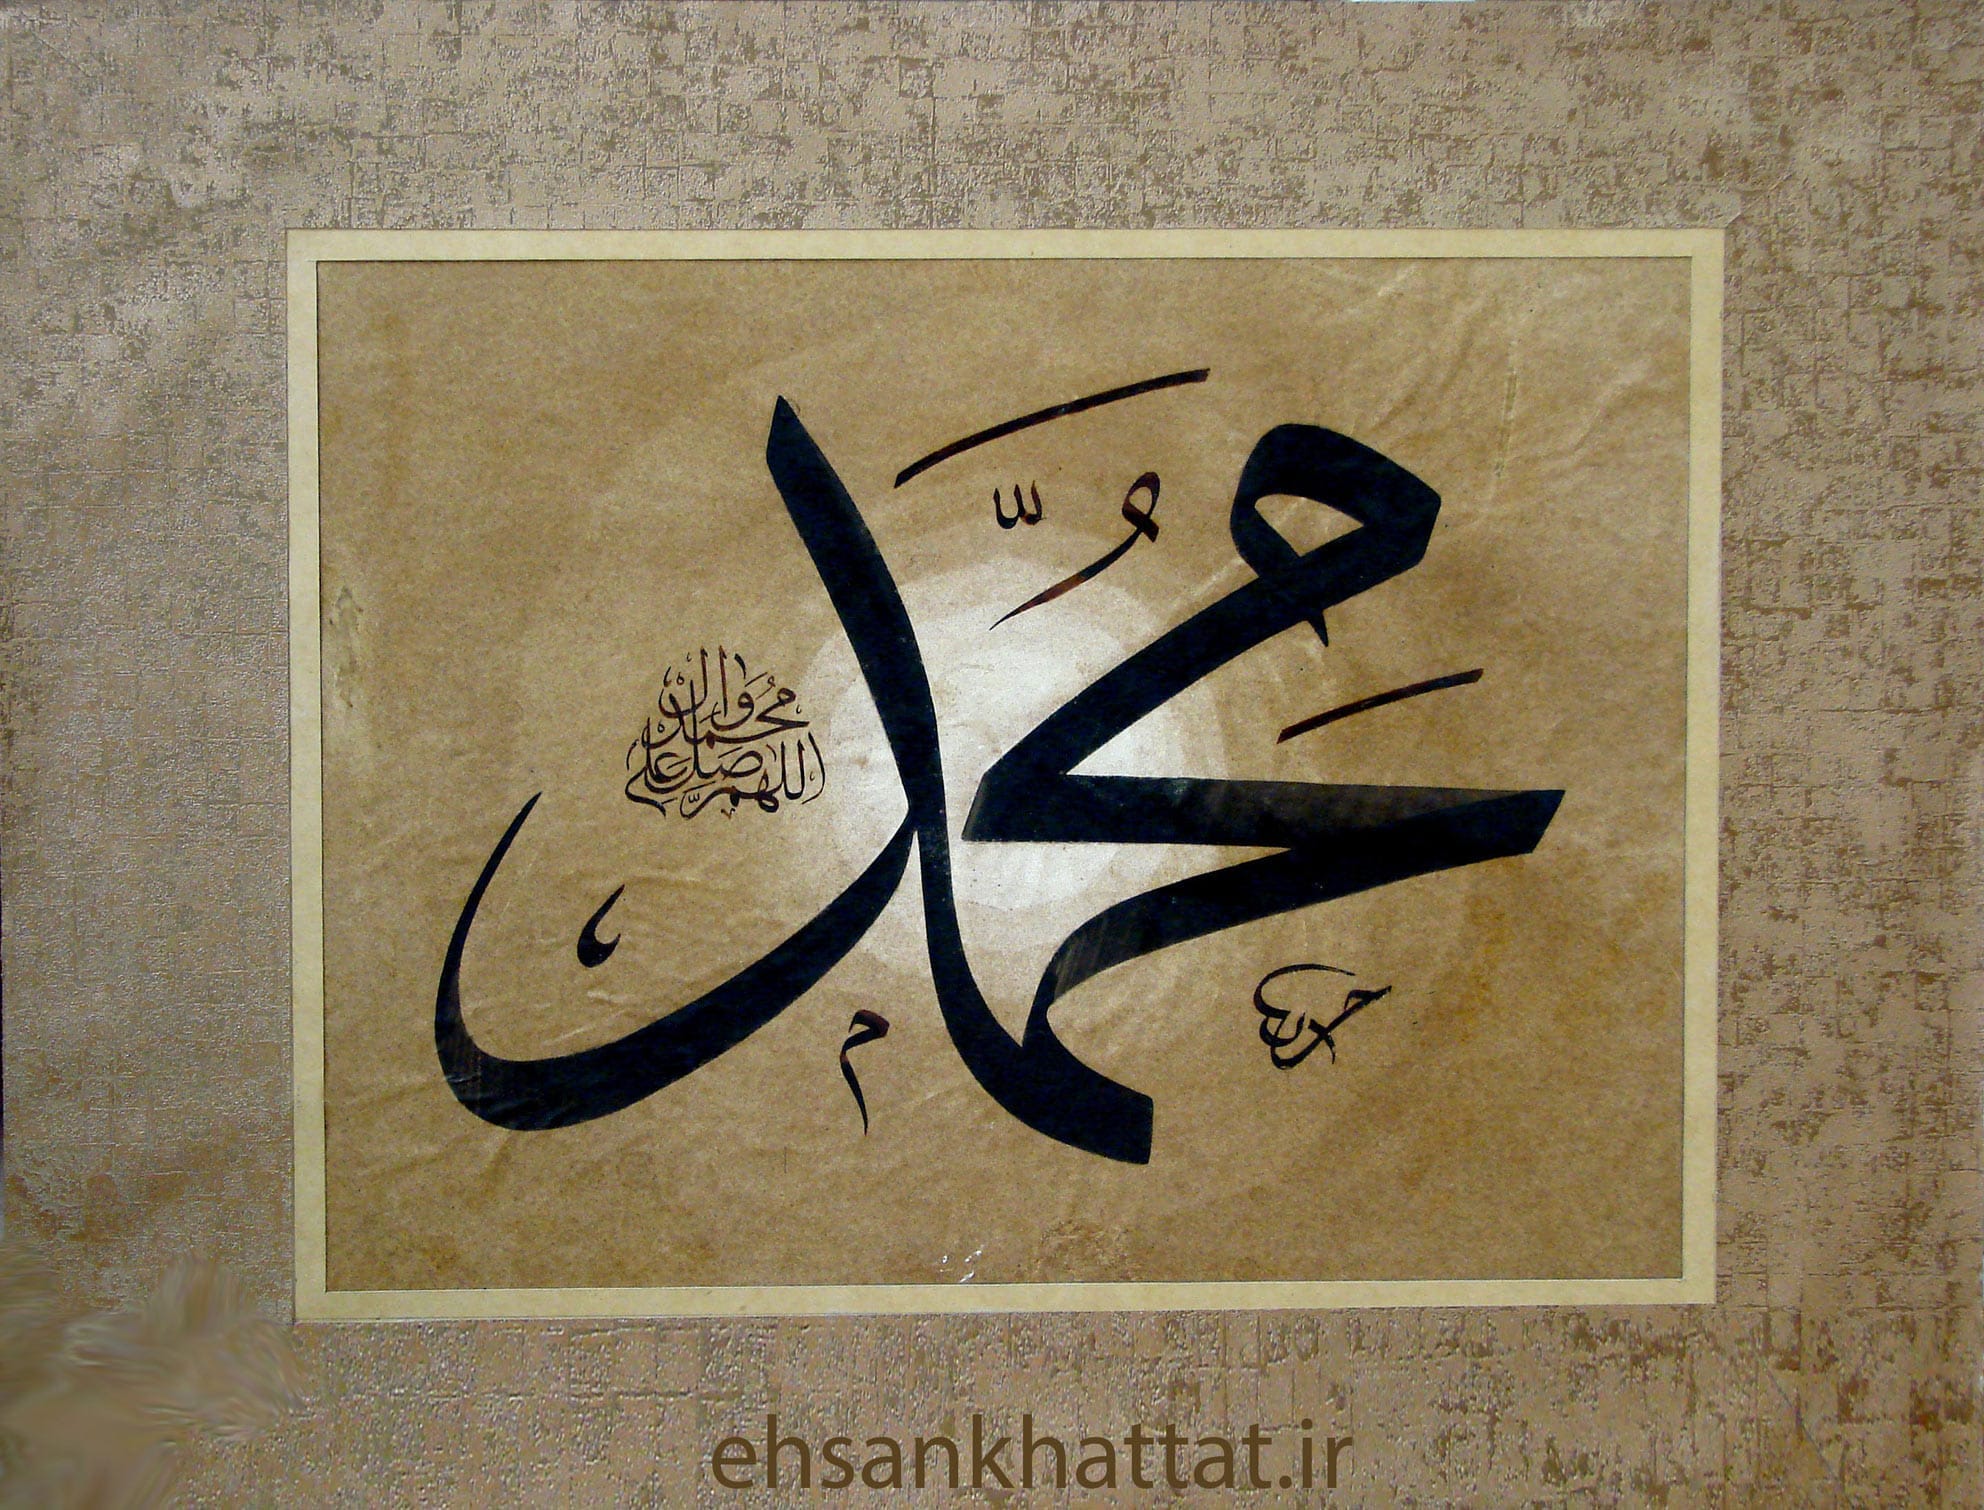 مُحَمَّد
اللهم صَلِّ علی
محمد وآل
محمد
ehsankhattat.ir